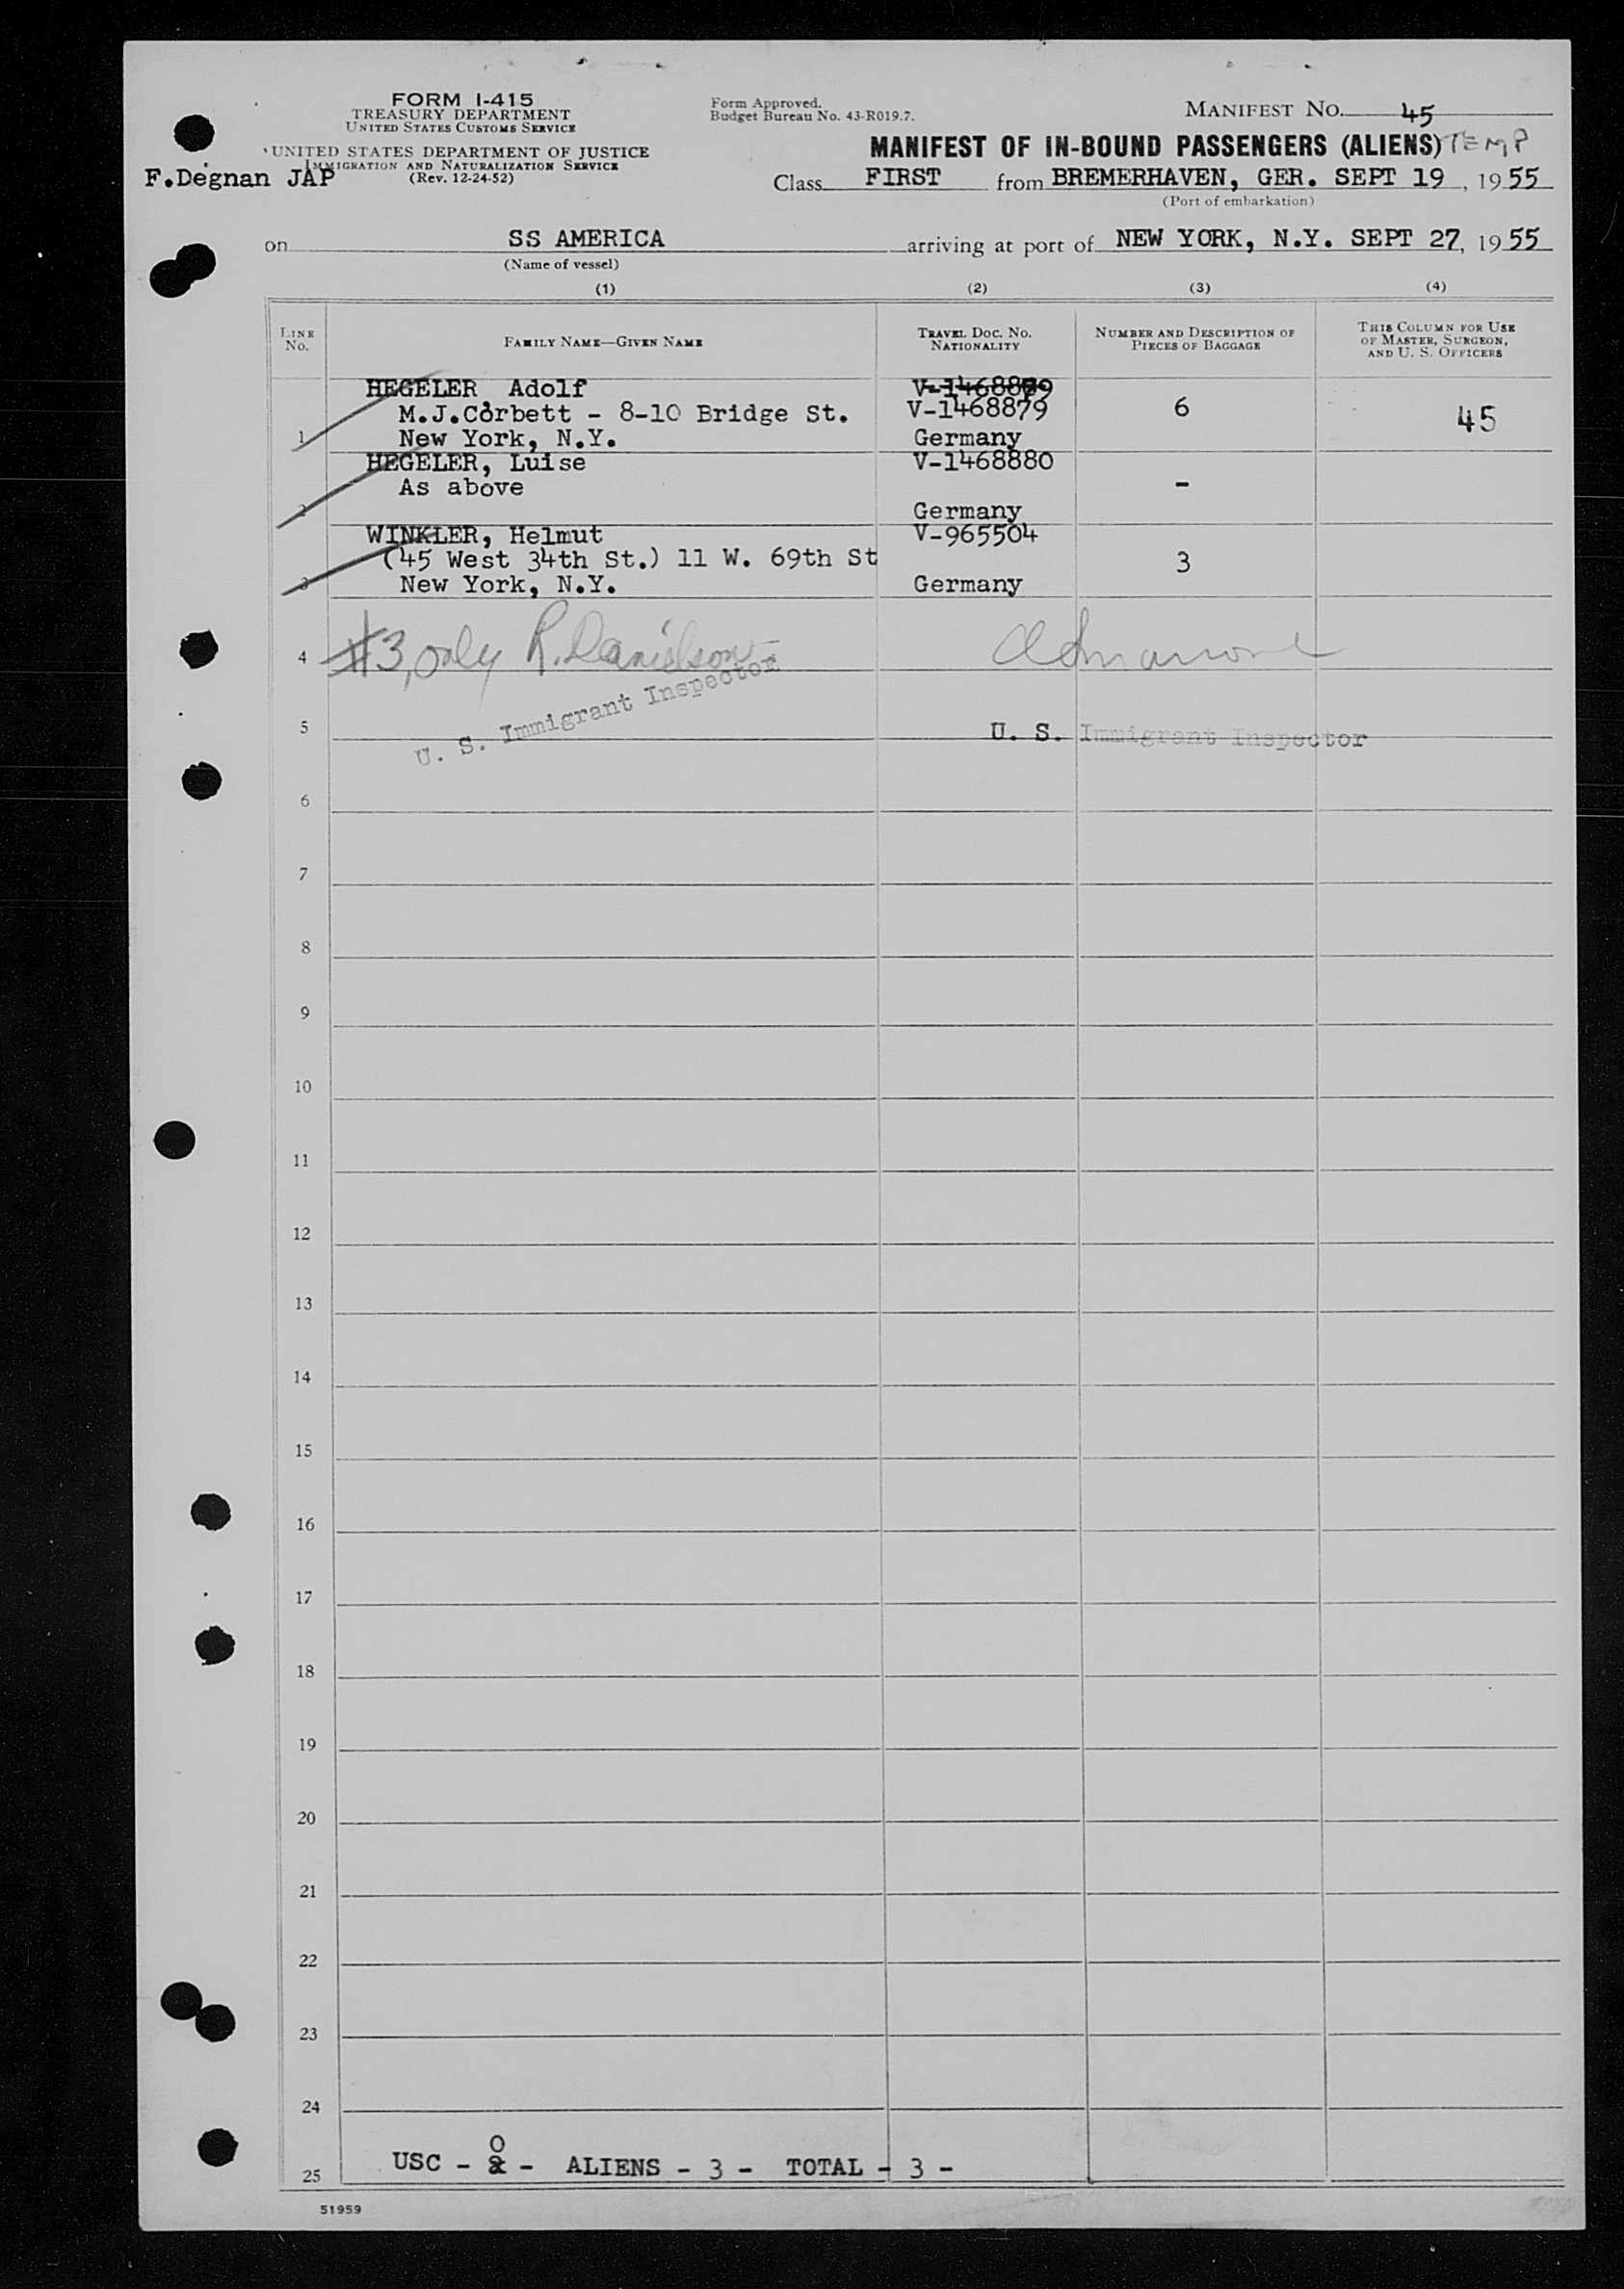 FORM I-415
TREASURY DEPARTMENT
UNITED STATES CUSTOMS SERVICE
UNITED STATES DEPARTMENT OF JUSTICE
IMMIGRATION AND NATURALIZATION SERVICE
(Rev. 12-24-52)
F.Degnan JAP
Form Approved.
Budget Bureau No. 43-R019.7.
MANIFEST NO. 45
MANIFEST OF IN-BOUND PASSENGERS (ALIENS) TEMP
Class FIRST from BREMERHAVEN, GER. SEPT 19, 1955
(Port of embarkation)
on SS AMERICA arriving at port of NEW YORK, N.Y. SEPT 27, 1955
(Name of vessel)
(1) (2) (3) (4)
LINE NO. FAMILY NAME—GIVEN NAME TRAVEL DOC. NO. NATIONALITY NUMBER AND DESCRIPTION OF PIECES OF BAGGAGE THIS COLUMN FOR USE OF MASTER, SURGEON, AND U. S. OFFICERS
HEGELER, Adolf
M.J.Corbett - 8-10 Bridge St. V-1468879 6 45
1 New York, N.Y. Germany
HEGELER, Luise V-1468880
As above -
2 Germany
WINKLER, Helmut V-965504
(45 West 34th St.) 11 W. 69th St 3
3 New York, N.Y. Germany
4 #3, only R. Danielson
5 U. S. Immigrant Inspector U. S. Immigrant Inspector
6
7
8
9
10
11
12
13
14
15
16
17
18
19
20
21
22
23
24
25 USC - 0 - ALIENS - 3 - TOTAL - 3 -
51959